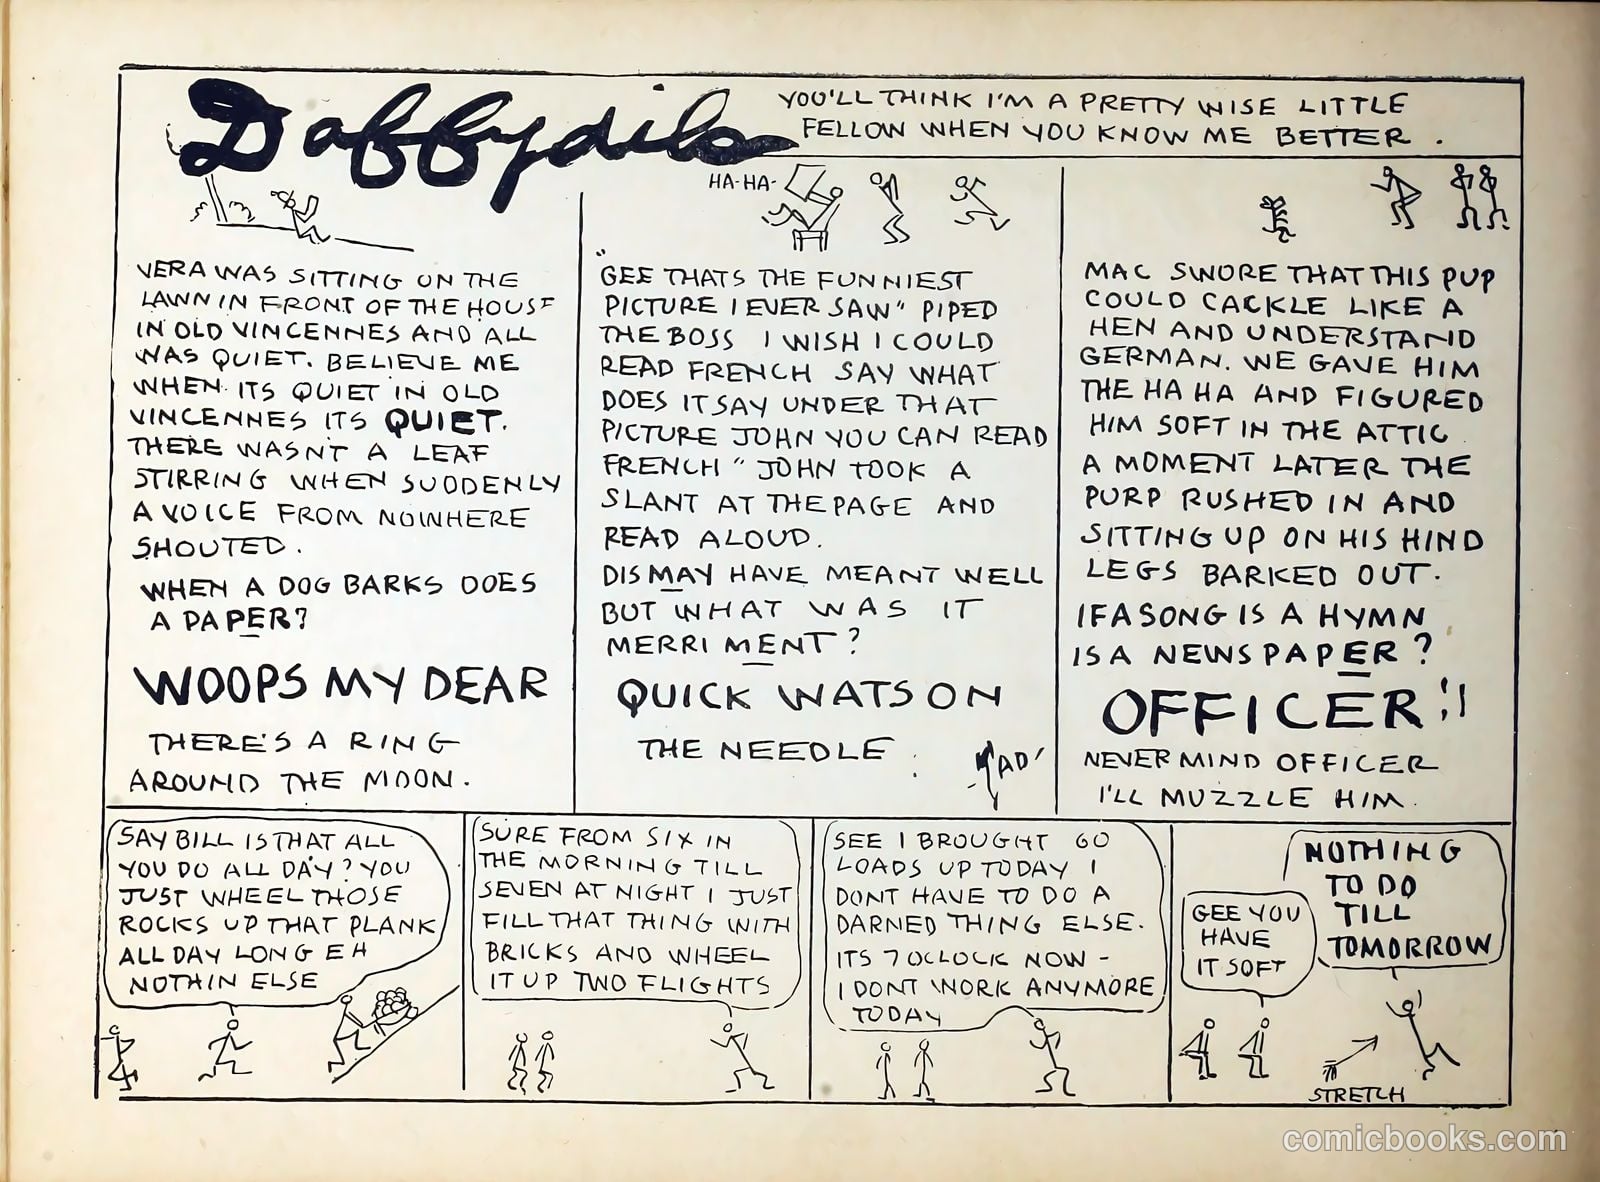 Daffydils
YOU'LL THINK I'M A PRETTY WISE LITTLE
FELLOW WHEN YOU KNOW ME BETTER .
VERA WAS SITTING ON THE
LAWN IN FRONT OF THE HOUSE
IN OLD VINCENNES AND ALL
WAS QUIET. BELIEVE ME
WHEN ITS QUIET IN OLD
VINCENNES ITS QUIET.
THERE WASNT A LEAF
STIRRING WHEN SUDDENLY
A VOICE FROM NOWHERE
SHOUTED .
WHEN A DOG BARKS DOES
A PAPER?
WOOPS MY DEAR
THERE'S A RING
AROUND THE MOON .
HA-HA-
"GEE THATS THE FUNNIEST
PICTURE I EVER SAW" PIPED
THE BOSS I WISH I COULD
READ FRENCH SAY WHAT
DOES IT SAY UNDER THAT
PICTURE JOHN YOU CAN READ
FRENCH" JOHN TOOK A
SLANT AT THE PAGE AND
READ ALOUD.
DISMAY HAVE MEANT WELL
BUT WHAT WAS IT
MERRIMENT?
QUICK WATSON
THE NEEDLE .
TAD'
MAC SWORE THAT THIS PUP
COULD CACKLE LIKE A
HEN AND UNDERSTAND
GERMAN. WE GAVE HIM
THE HA HA AND FIGURED
HIM SOFT IN THE ATTIC
A MOMENT LATER THE
PURP RUSHED IN AND
SITTING UP ON HIS HIND
LEGS BARKED OUT.
IF A SONG IS A HYMN
IS A NEWSPAPER?
OFFICER!!
NEVER MIND OFFICER
I'LL MUZZLE HIM.
SAY BILL IS THAT ALL
YOU DO ALL DAY? YOU
JUST WHEEL THOSE
ROCKS UP THAT PLANK
ALL DAY LONG EH
NOTHIN ELSE
SURE FROM SIX IN
THE MORNING TILL
SEVEN AT NIGHT I JUST
FILL THAT THING WITH
BRICKS AND WHEEL
IT UP TWO FLIGHTS
SEE I BROUGHT 60
LOADS UP TODAY I
DONT HAVE TO DO A
DARNED THING ELSE.
ITS 7 OCLOCK NOW -
I DONT WORK ANYMORE
TODAY
GEE YOU
HAVE
IT SOFT
NOTHING
TO DO
TILL
TOMORROW
STRETCH
comicbooks.com